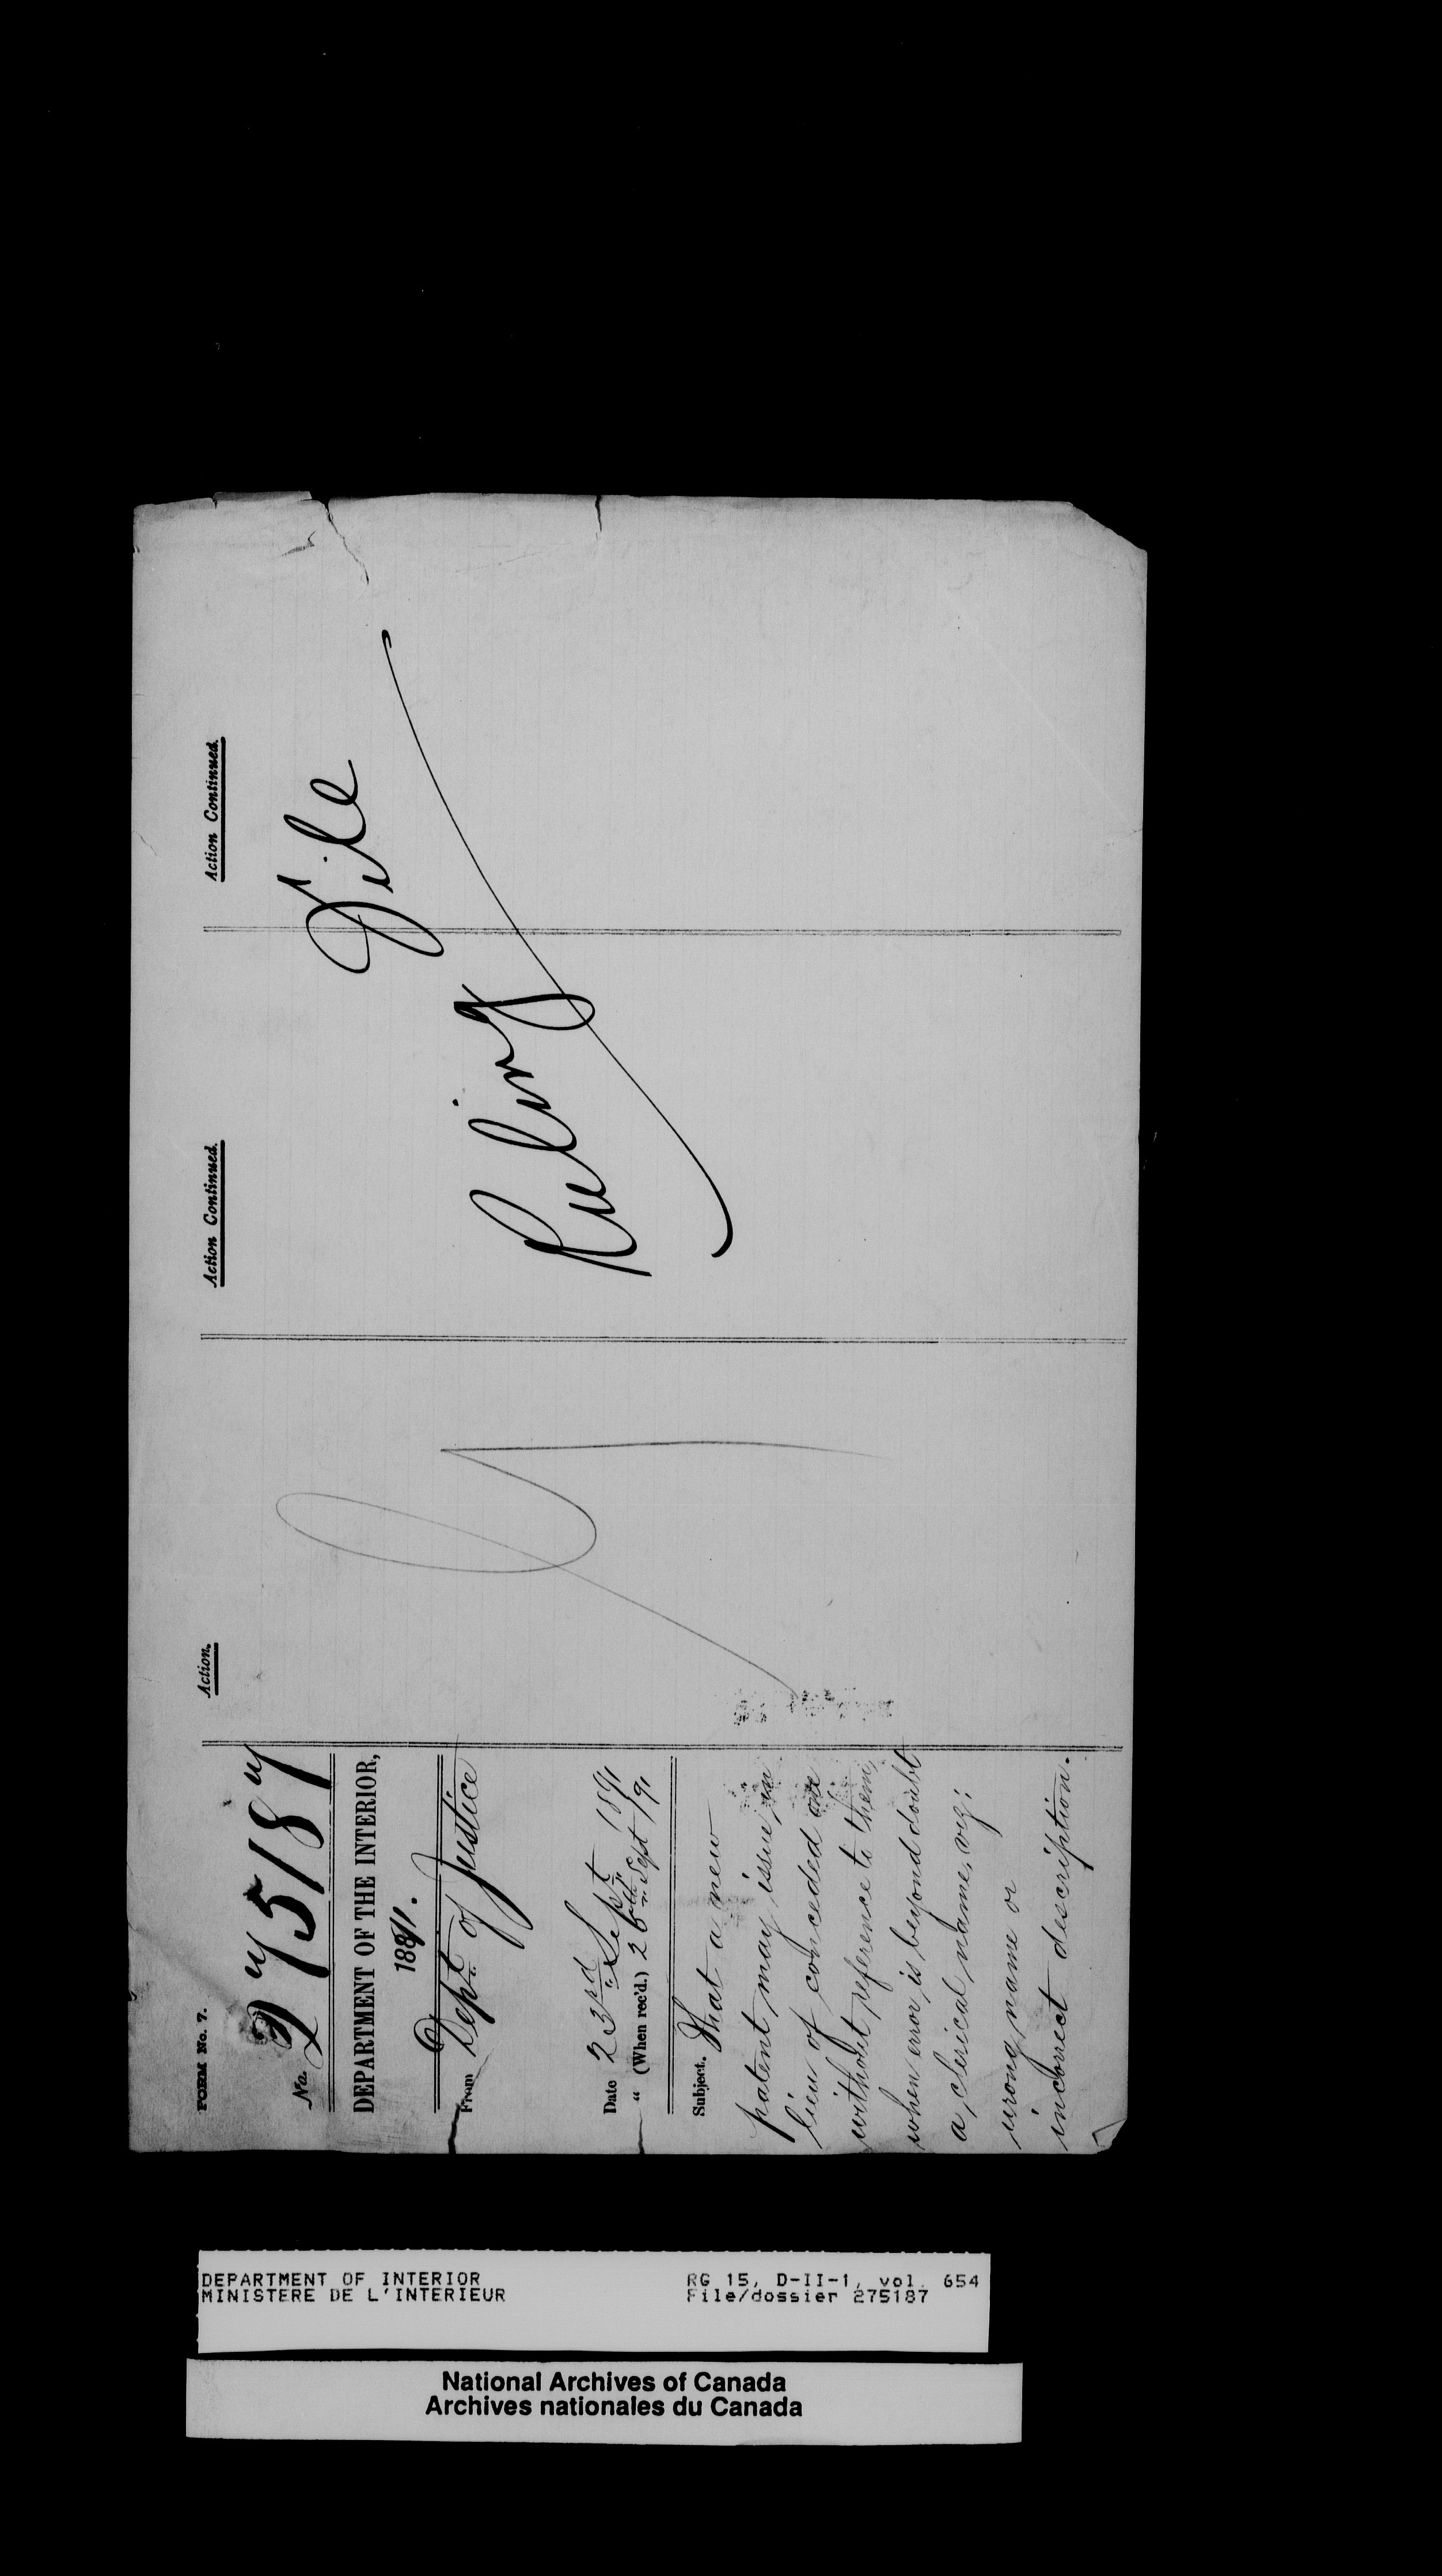 FORM No. 7.
No. 275187
DEPARTMENT OF THE INTERIOR,
1891.
From Dept of Justice
Date 23rd Sept 1891
" (When rec'd.) 26th Sept /91
Subject. That a new
patent may issue in
lieu of conceded one
without reference to them,
when error is beyond doubt
a clerical name, viz:
wrong name or
incorrect description.
Action.
Action Continued.
Action Continued.
Ruling File
DEPARTMENT OF INTERIOR
MINISTERE DE L'INTERIEUR
RG 15, D-II-1, vol. 654
File/dossier 275187
National Archives of Canada
Archives nationales du Canada